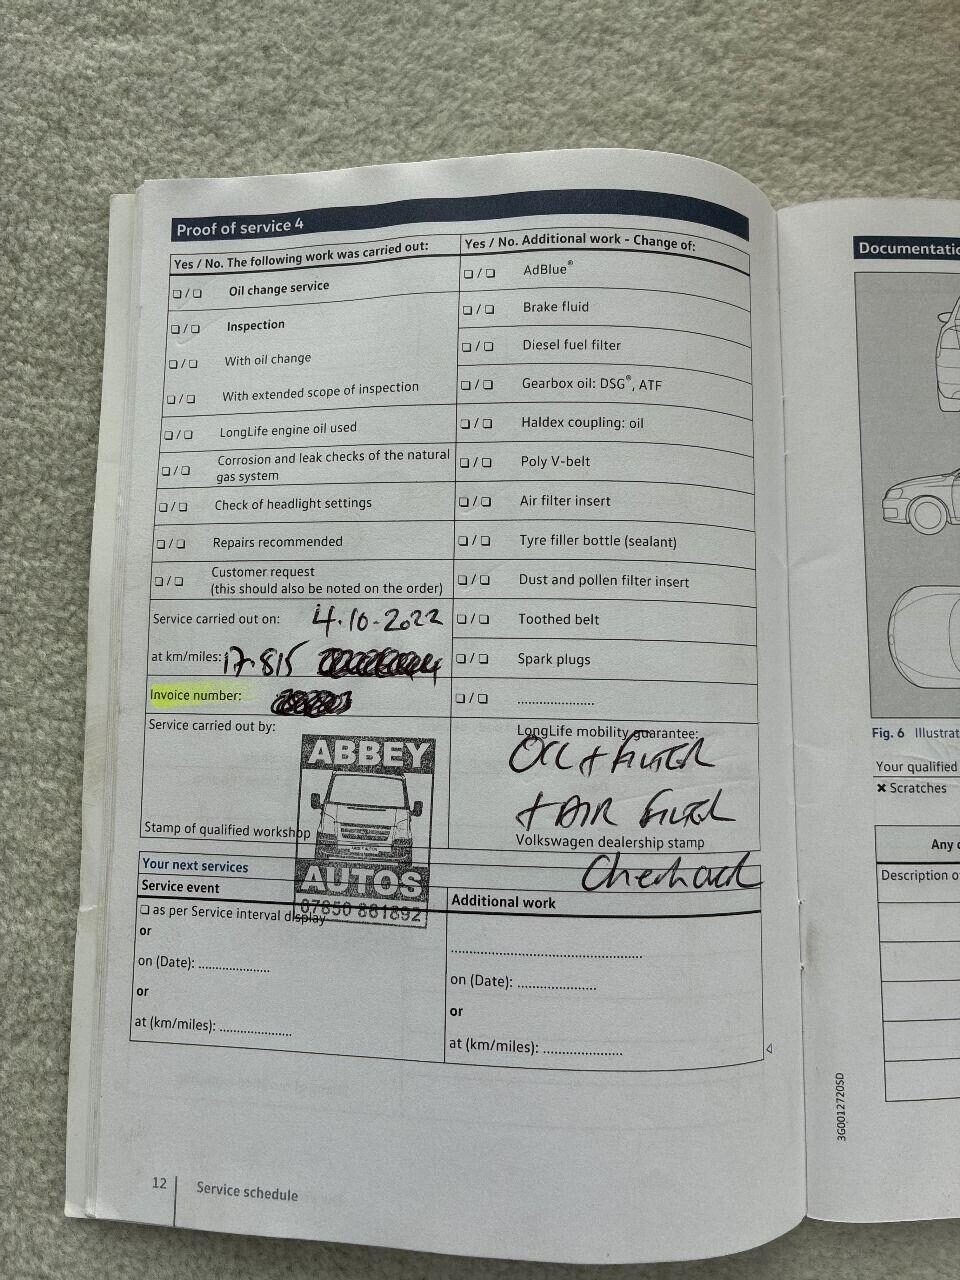 Proof of service 4
Yes / No. The following work was carried out:
❏ / ❏ Oil change service
❏ / ❏ Inspection
❏ / ❏ With oil change
❏ / ❏ With extended scope of inspection
❏ / ❏ LongLife engine oil used
❏ / ❏ Corrosion and leak checks of the natural
gas system
❏ / ❏ Check of headlight settings
❏ / ❏ Repairs recommended
❏ / ❏ Customer request
(this should also be noted on the order)
Service carried out on: 4.10-2022
at km/miles: 17.815
Invoice number:
Service carried out by:
ABBEY
AUTOS
07850 881892
Stamp of qualified workshop
Yes / No. Additional work - Change of:
❏ / ❏ AdBlue®
❏ / ❏ Brake fluid
❏ / ❏ Diesel fuel filter
❏ / ❏ Gearbox oil: DSG®, ATF
❏ / ❏ Haldex coupling: oil
❏ / ❏ Poly V-belt
❏ / ❏ Air filter insert
❏ / ❏ Tyre filler bottle (sealant)
❏ / ❏ Dust and pollen filter insert
❏ / ❏ Toothed belt
❏ / ❏ Spark plugs
❏ / ❏ ......................
LongLife mobility guarantee:
OIL + FILTER
+ AIR FILTER
Volkswagen dealership stamp
Your next services
Service event
❏ as per Service interval display
or
on (Date): ....................
or
at (km/miles): ....................
Additional work
......................................................
on (Date): ......................
or
at (km/miles): ......................
12 Service schedule
Documentatio
Fig. 6 Illustrat
Your qualified
✖ Scratches
Any
Description o
3G0012720SD